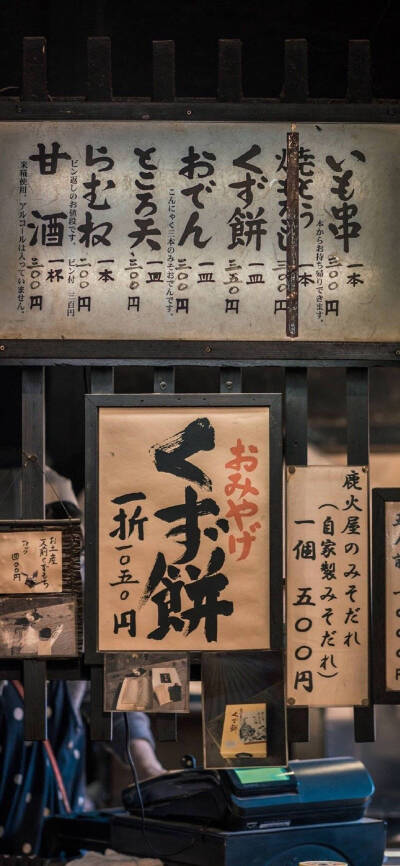 いも串
一本 三〇〇円
一本からお持ち帰りできます。
くず餅
一皿 三五〇円
おでん
一皿 三〇〇円
こんにゃく三本のみそおでんです。
ところ天
一皿 三〇〇円
らむね
一本 二〇〇円
ビン返しのお値段です。
ビン付 三百円
甘酒
一杯 三〇〇円
米糀使用。アルコールは入っていません。
おみやげ
くず餅
一折 一〇五〇円
鹿火屋のみそだれ
(自家製みそだれ)
一個 五〇〇円
お土産
四〇〇円
くず餅